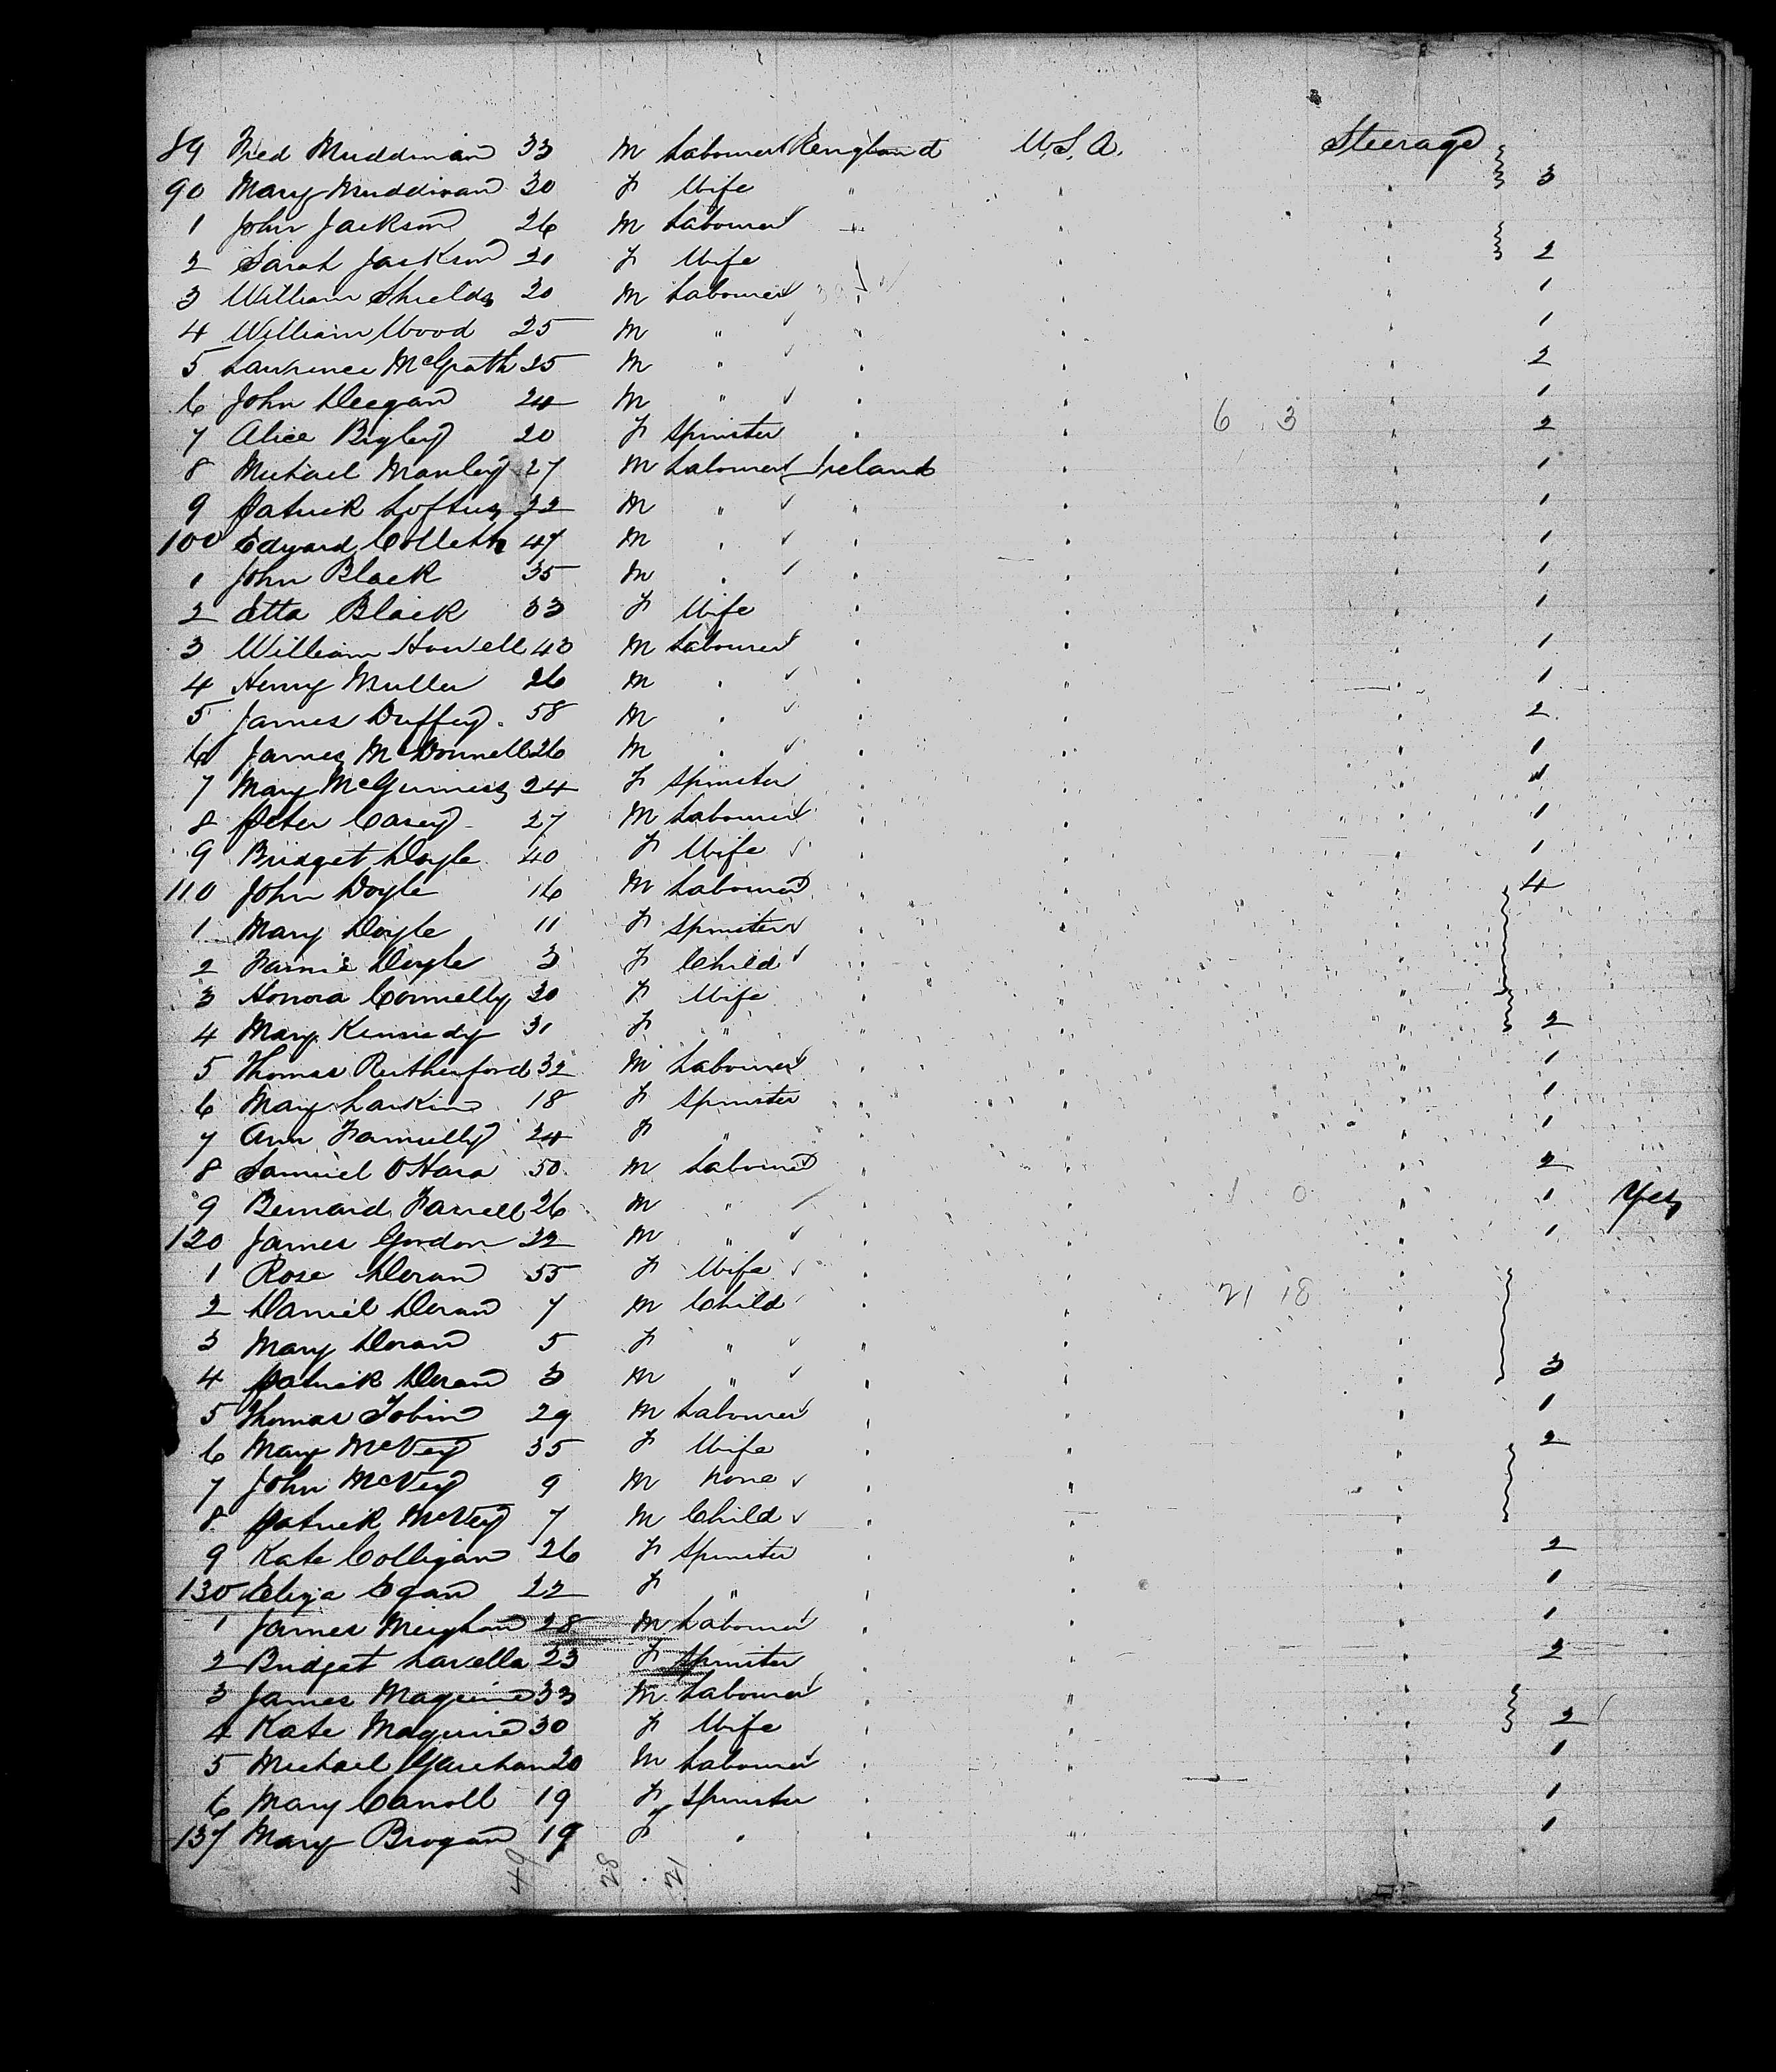 89 Fred Muddiman 33 M Labourer England U.S.A. Steerage
90 Mary Muddiman 30 F Wife " " " 3
1 John Jackson 26 M Labourer " " "
2 Sarah Jackson 21 F Wife " " " 2
3 William Shields 20 M Labourer " " " 1
4 William Wood 25 M " " " " 1
5 Lawrence McGrath 25 M " " " " 2
6 John Deegan 24 M " " " " 1
7 Alice Bigley 20 F Spinster " " 6 3 " 2
8 Michael Manley 27 M Labourer Ireland " " 1
9 Patrick Loftus 22 M " " " " 1
100 Edward 47 M " " " " 1
1 John Black 35 M " " " " 1
2 Etta Black 33 F Wife " " " 1
3 William Howell 40 M Labourer " " " 1
4 Henry Muller 26 M " " " " 1
5 James Duffey 58 M " " " " 2
6 James McDonnell 26 M " " " " 1
7 Mary McGuiness 24 F Spinster " " " 1
8 Peter Casey 27 M Labourer " " " 1
9 Bridget Doyle 40 F Wife " " " 1
110 John Doyle 16 M Labourer " " " 4
1 Mary Doyle 11 F Spinster " " "
2 Fannie Doyle 3 F Child " " "
3 Honora Connelly 30 F Wife " " "
4 Mary Kennedy 31 F " " " " 2
5 Thomas Rutherford 32 M Labourer " " " 1
6 Mary Larkin 18 F Spinster " " " 1
7 Ann 24 F " " " " 1
8 Samuel OHara 50 M Labourer " " " 2
9 Bernard Farrell 26 M " " " 1 0 " 1 Yes
120 James Gordon 22 M " " " " 1
1 Rose Doran 35 F Wife " " "
2 Daniel Doran 7 M Child " " 21 18 "
3 Mary Doran 5 F " " " "
4 Patrick Doran 3 M " " " " 3
5 Thomas Tobin 29 M Labourer " " " 1
6 Mary McVey 35 F Wife " " " 2
7 John McVey 9 M None " " "
8 Patrick McVey 7 M Child " " "
9 Kate Colligan 26 F Spinster " " " 2
130 Eliza Egan 22 F " " " " 1
1 James Meighan 28 M Labourer " " " 1
2 Bridget Lavelle 23 F Spinster " " " 2
3 James Maguire 33 M Labourer " " "
4 Kate Maguire 30 F Wife " " " 2
5 Michael 20 M Labourer " " " 1
6 Mary Carroll 19 F Spinster " " " 1
137 Mary Brogan 19 F " " " " 1
49 28 21